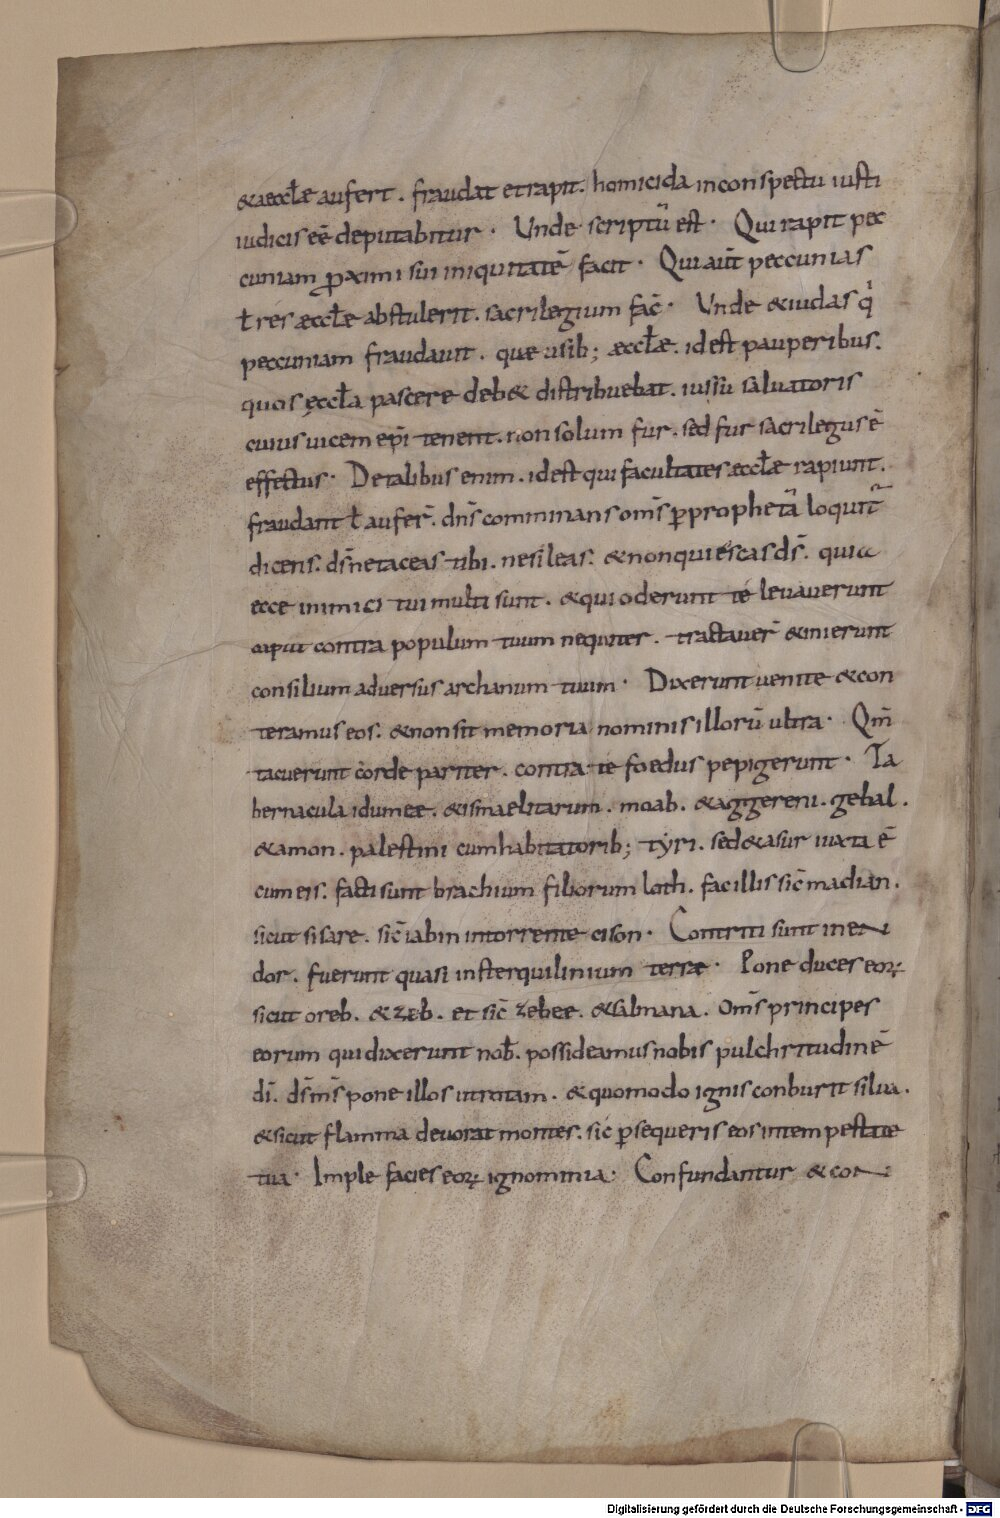 & aeccl̄ae aufert . fraudat et rapit . homicida in conspectu iusti
iudicis eē deputabitur . Unde scriptū est . Qui rapit pec
cuniam ꝓximi sui iniquitatē facit . Qui aūt peccunias
t̄ res aeccl̄ae abstulerit . sacrilegium fac̄ . Unde & iudas q'
peccuniam fraudavit . quae usib; aeccl̄ae . id est pauperibus .
quos ęccl̄a pascere deb& distribuebat . iussu salvatoris
cuius vicem ep̄i tenent . non solum fur . sed fur sacrilegus ē
effectus . De talibus enim . id est qui facultates aeccl̄ae rapiunt .
fraudant t̄ aufer̄ . dn̄s comminans om̄s ꝑ prophetā loquit̄
dicens . ds̄ ne taceas tibi . ne sileas . & non quiescas ds̄ . quia
ecce inimici tui multi sunt . & qui oderunt te levaverunt
caput contra populum tuum nequiter . tractaver̄ & inierunt
consilium adversus archanum tuum . Dixerunt venite & con
teramus eos . & non sit memoria nominis illorū ultra . Qm̄
tacuerunt corde pariter . contra te foedus pepigerunt . Ta
bernacula idumee . & ismaelitarum . moab . & aggereni . gebal .
& amon . palestini cum habitatorib; tyri . sed & asur iuxta ē
cum eis . facti sunt brachium filiorum loth . fac illis sic̄ madian .
sicut sisare . sic̄ iabin in torrente cison . Contriti sunt in en
dor . fuerunt quasi in sterquilinium terrae . Pone duces eoꝝ
sicut oreb . & zeb . et sic̄ zebee . & salmana . Om̄s principes
eorum qui dixerunt nob̄ . possideamus nobis pulchritudinē
dī . ds̄ ms̄ pone illos ut rotam . & quomodo ignis conburit silva .
& sicut flamma devorat montes . sic ꝑsequeris eos in tempestate
tua . Imple facies eoꝝ ignominia . Confundantur & con
Digitalisierung gefördert durch die Deutsche Forschungsgemeinschaft - DFG